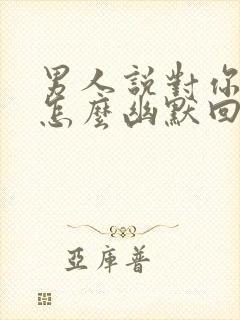 男人説對你
怎麼幽默回
亞庫普